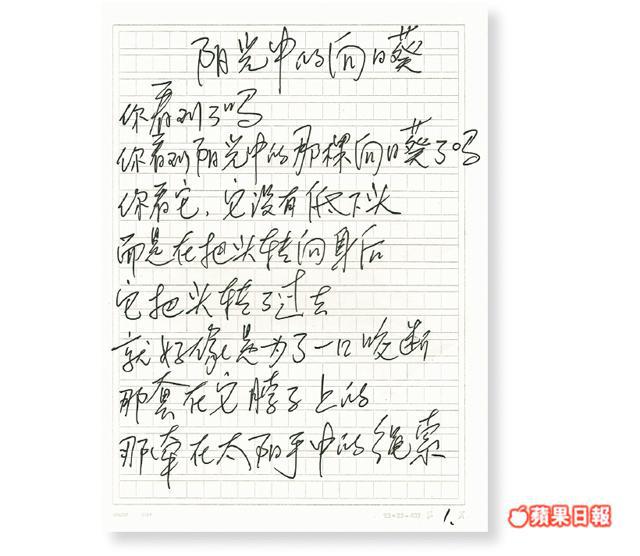 阳光中的向日葵
你看到了吗
你看到阳光中的那棵向日葵了吗
你看它，它没有低下头
而是在把头转向身后
它把头转了过去
就好像是为了一口咬断
那套在它脖子上的
那牵在太阳手中的绳索
1.
蘋果日報